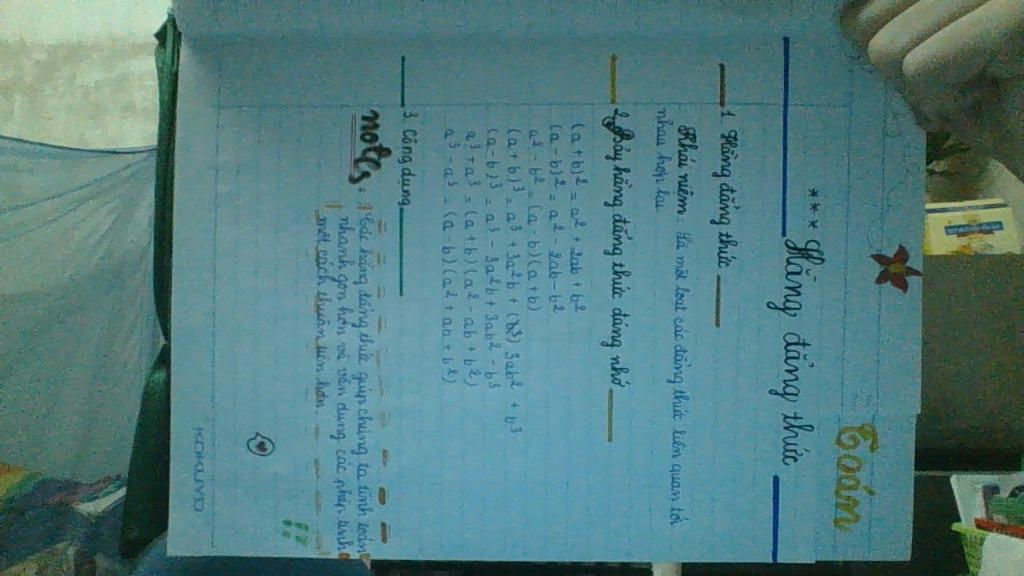 Toán
*** Hằng đẳng thức
1 Hằng đẳng thức
Khái niệm: Là một loạt các đẳng thức liên quan tới
nhau hợp lại
2. Bảy hằng đẳng thức đáng nhớ
(a + b)² = a² + 2ab + b²
(a - b)² = a² - 2ab - b²
a² - b² = (a - b)(a + b)
(a + b)³ = a³ + 3a²b + (b³) 3ab² + b³
(a - b)³ = a³ - 3a²b + 3ab² - b³
a³ + a³ = (a + b)(a² - ab + b²)
a³ - a³ = (a - b)(a² + ab + b²)
3 Công dụng
notes: Các hằng đẳng thức giúp chúng ta tính toán
nhanh gọn hơn và vận dụng các phép tính
một cách thuận tiện hơn.